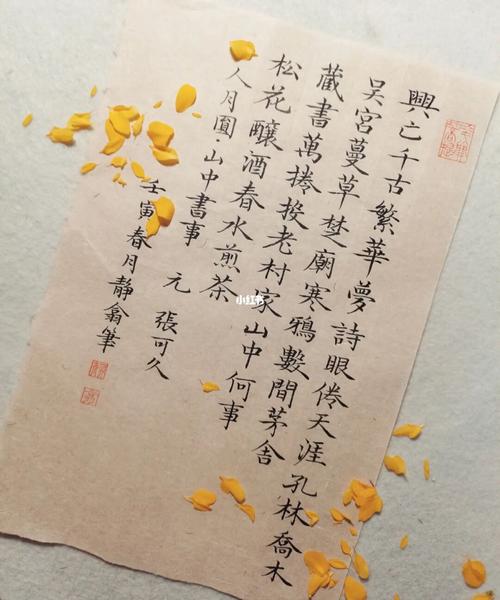 興亡千古繁華夢詩眼倦天涯孔林喬木
吳宮蔓草楚廟寒鴉數間茅舍
藏書萬捲投老村家山中何事
松花釀酒春水煎茶
人月圓·山中書事 元 張可久
壬寅春月靜翕筆
小红书